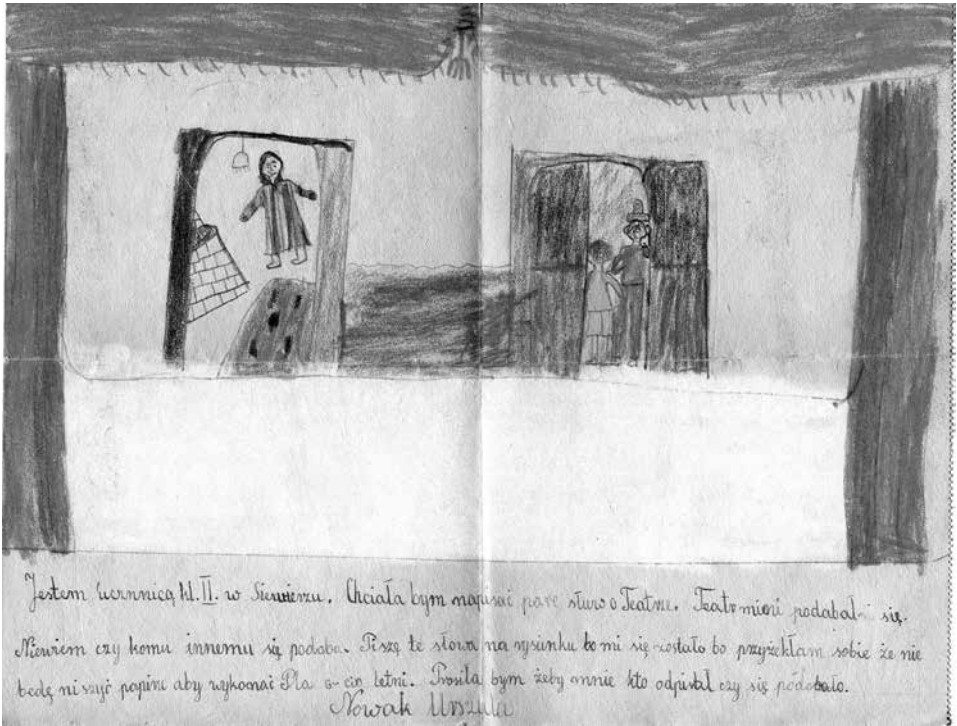 Jestem uczennicą kl. II. w Siewierzu. Chciała bym napisać pare słuw o Teatrze. Teatr mioni podabał mi się.
Niewiem czy komu innemu się podoba. Piszę te słowa na rysunku bo mi się zostało bo przyżekłam sobie że nie
bedę niszyć papiru aby wykonać Pla 5-cio letni. Prosiła bym żeby mnie kto odpisał czy się podobało.
Nowak Urszula